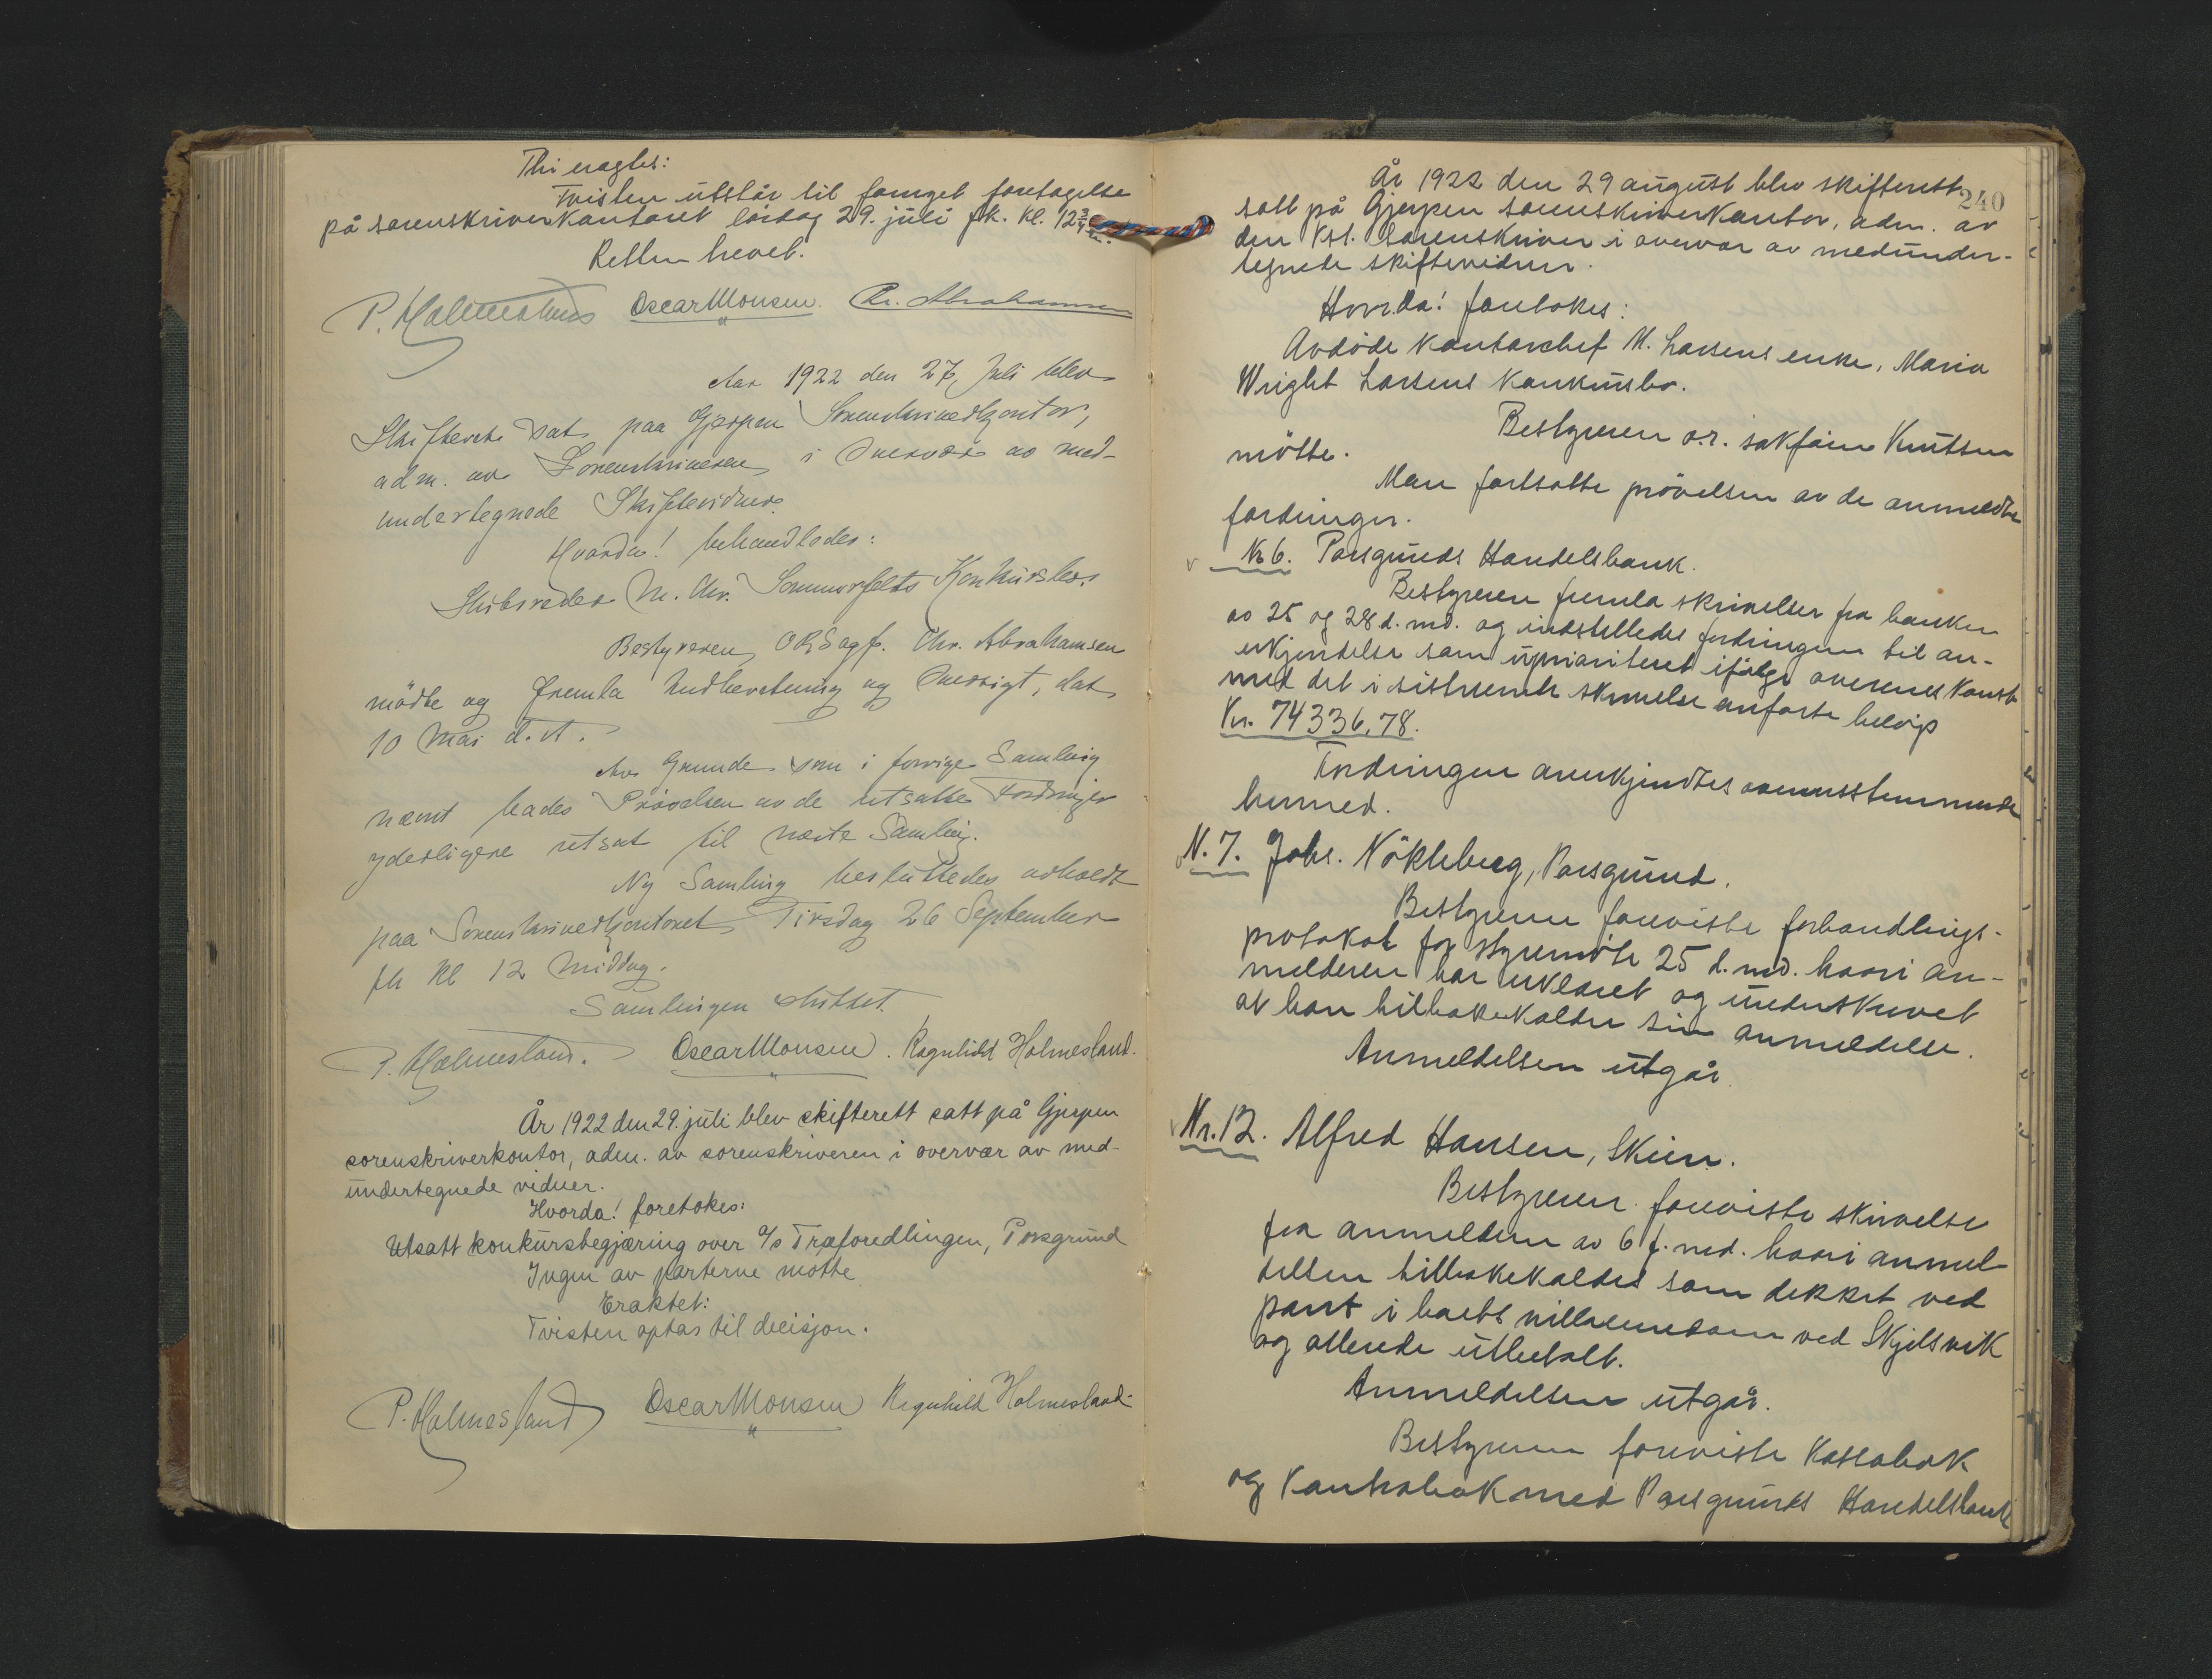 Thi eragtes:
Tvisten utstår til fornyet foretagelse
på sorenskriverkontoret lördag 29. juli fk. kl. 12 3/4
Retten hevet.
P. Holmesland Oscar Monsen. Chr. Abrahamsen
Aar 1922 den 27. Juli blev
Skifteret sat paa Gjerpen Sorenskriverkontor,
adm. av Sorenskriveren i Overvær av med-
undertegnede Skiftevidner.
Hvorda! behandledes:
Skibsreder M. Chr. Sommerfeldts Konkursbo.
Bestyreren, ORSagf. Chr. Abrahamsen
mödte og fremla Indberetning og Oversigt, dat.
10 Mai d. A.
Av Grunde som i forrige Samling
nævnt bades Prövelsen av de utsatte Fordringer
yderligere utsat til næste Samling.
Ny Samling besluttedes avholdt
paa Sorenskriverkontoret Tirsdag 26 September
fk Kl 12 Middag.
Samlingen sluttet.
P. Holmesland. Oscar Monsen. Ragnhild Holmesland.
År 1922 den 29. juli blev skifterett satt på Gjerpen
sorenskriverkontor, adm. av sorenskriveren i overvær av med-
undertegnede vidner.
Hvorda! foretokes:
Utsatt konkursbegjæring over A/S Træforedlingen, Porsgrund
Ingen av parterne møtte
Eraktet:
Tvisten optas til decisjon.
P. Holmesland Oscar Monsen Ragnhild Holmesland
240
År 1922 den 29 august blev skifterett
satt på Gjerpen sorenskriverkontor, adm. av
den kst. sorenskriver i overvær av medunder-
tegnede skiftevidner.
Hvorda! foretokes:
Avdöde kontorchef M. Larsens enke, Maria
Wright Larsens konkursbo.
Bestyreren o.r. sakförer Knutsen
mötte.
Man fortsatte prövelsen av de anmeldte
fordringer.
Nr 6. Porsgrunds Handelsbank.
Bestyreren fremla skrivelser fra banken
av 25 og 28 d. md. og indstilledes fordringen til an-
erkjendelse som uprioritert ifölge overenskomst
med det i sistnevnte skrivelse anförte belöp
Kr. 74336,78.
Fordringen anerkjendtes overensstemmende
hermed.
N. 7. Johs. Nökleberg, Porsgrund.
Bestyreren foreviste forhandlings-
protokol for styremöte 25 d. md. hvori an-
melderen har erklæret og underskrevet
at han tilbakekalder sin anmeldelse.
Anmeldelsen utgår.
Nr. 12. Alfred Hansen, Skien.
Bestyreren foreviste skrivelse
fra anmelderen av 6 f. md. hvori anmel-
delsen tilbakekaldes som dekket ved
pant i boets villaeiendom ved Skjelsvik
og allerede utbetalt.
Anmeldelsen utgår.
Bestyreren foreviste Kassabok
og Kontrabok med Porsgrunds Handelsbank